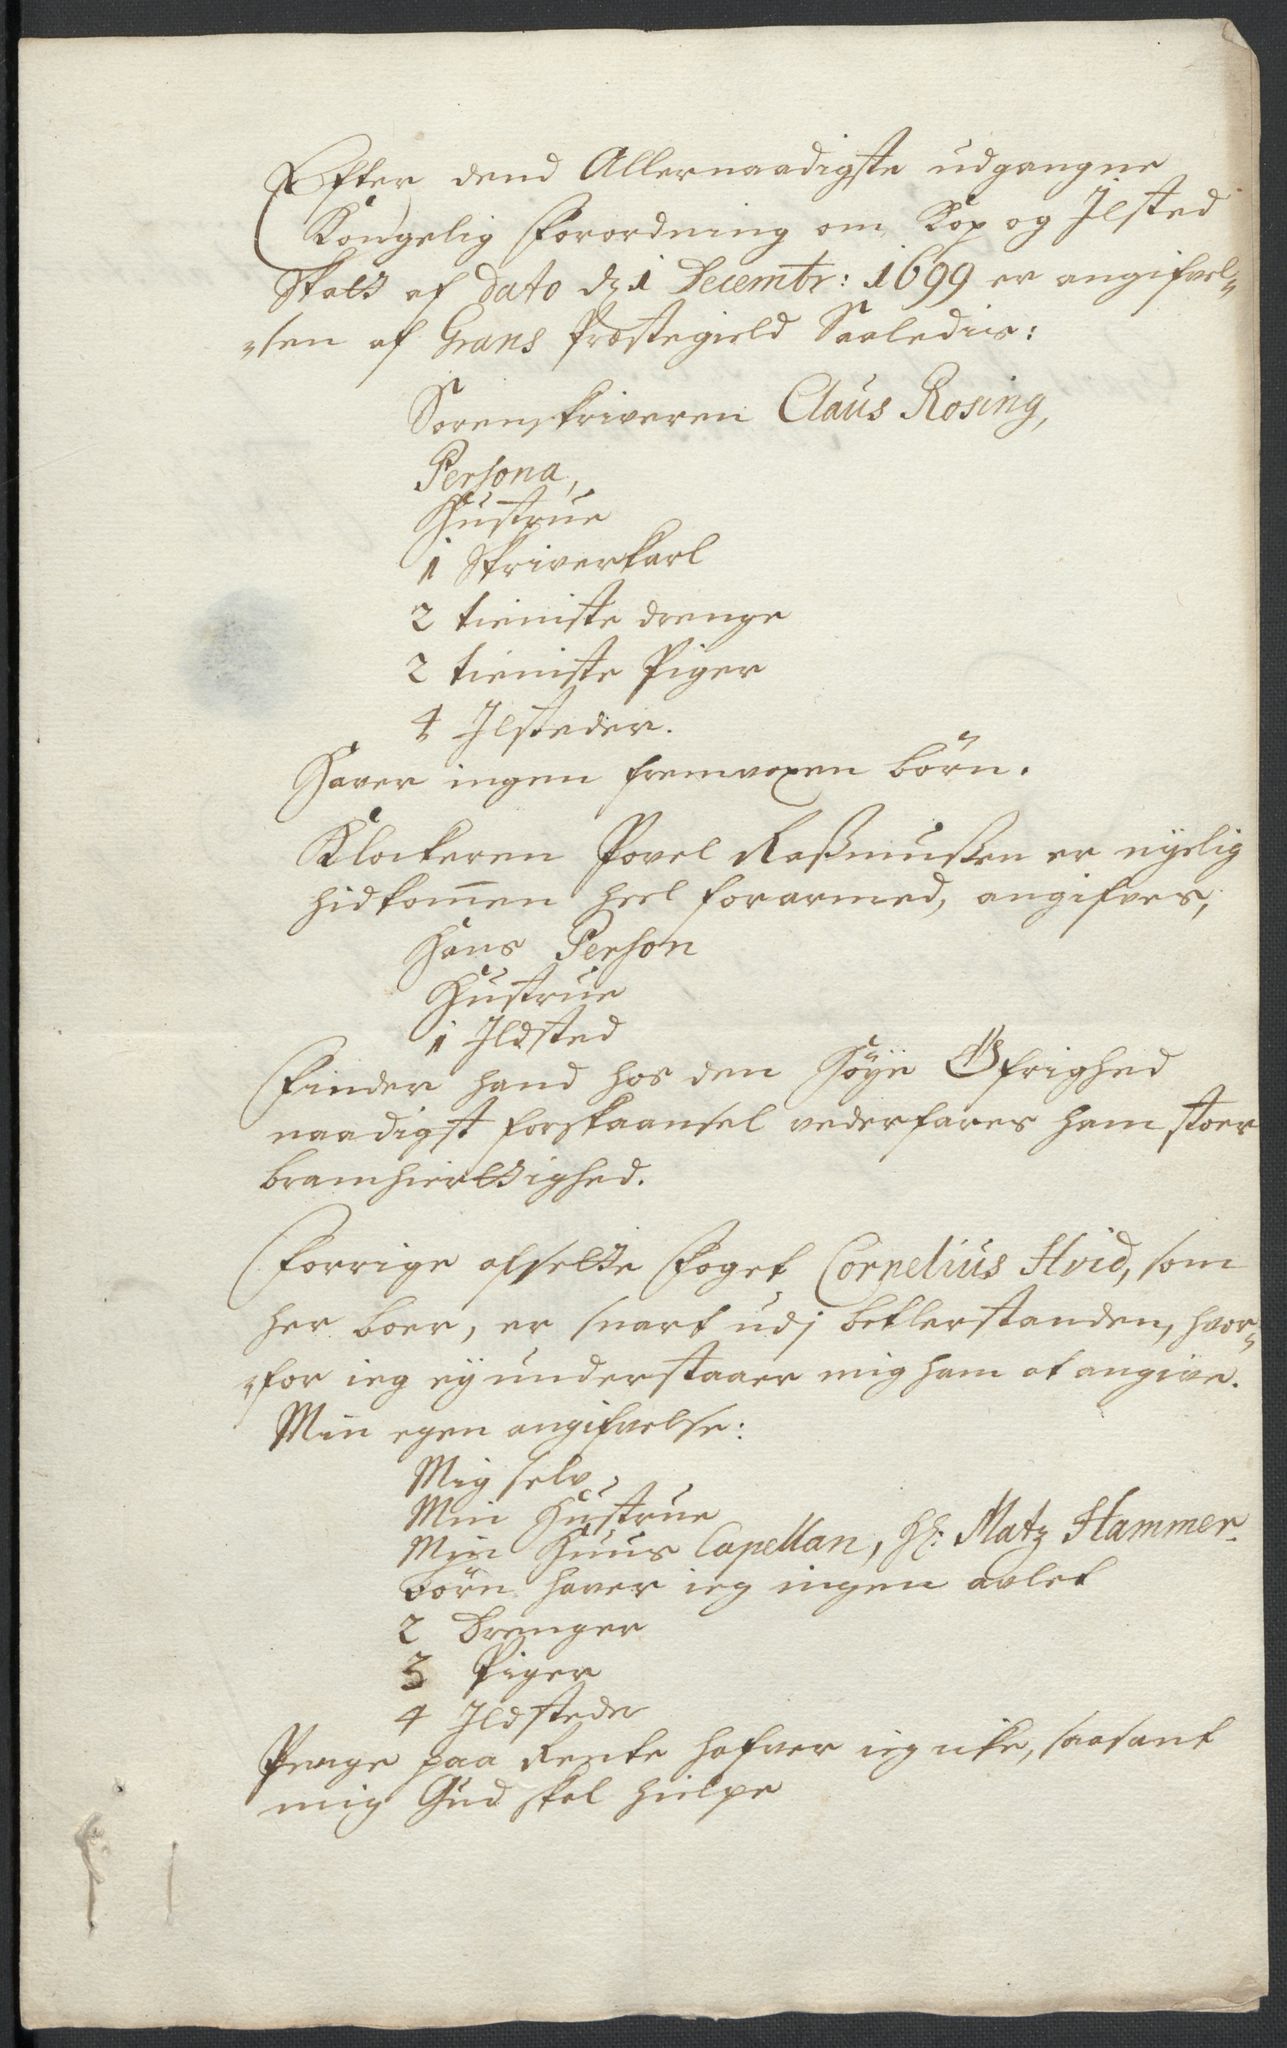 Efter dend Allernaadigste udgangne
Kongelig Forordning om Kop og Ilsted
Skatt af Dato d. 1 Decembr: 1699 er angifvel„
„sen af Grans Præstegield Saaledis:
Sorenskriveren Claus Rosing,
Persona,
Hustrue
1 Skriverkarl
2 tieniste drenge
2 tieniste Piger
4 Ilsteder.
Haver ingen fremvoxen börn.
Klockeren Povel Raßmußen er nyelig
hidkom̅en heel forarmed, angifves,
Hans Person
Hustrue
1 Ildsted
Finder hand hos den Höye Öfrighed
naadigst forskaansel vederfares ham stoer
bramhierttighed.
Forrige afsette Foget Cornelius Hvid, som
her boer, er snart udj betlerstanden, hvor„
„for ieg ey understaaer mig ham at angive.
Min egen angifvelse:
Mig selv,
Min Hustrue
Min Huus Capellan, Hr: Matz Hammer.
börn haver ieg ingen avlet
2 Drenger
3 Piger
4 Ildsteder
Penge paa Rente hafver ieg icke, saasant
mig Gud skal hielpe